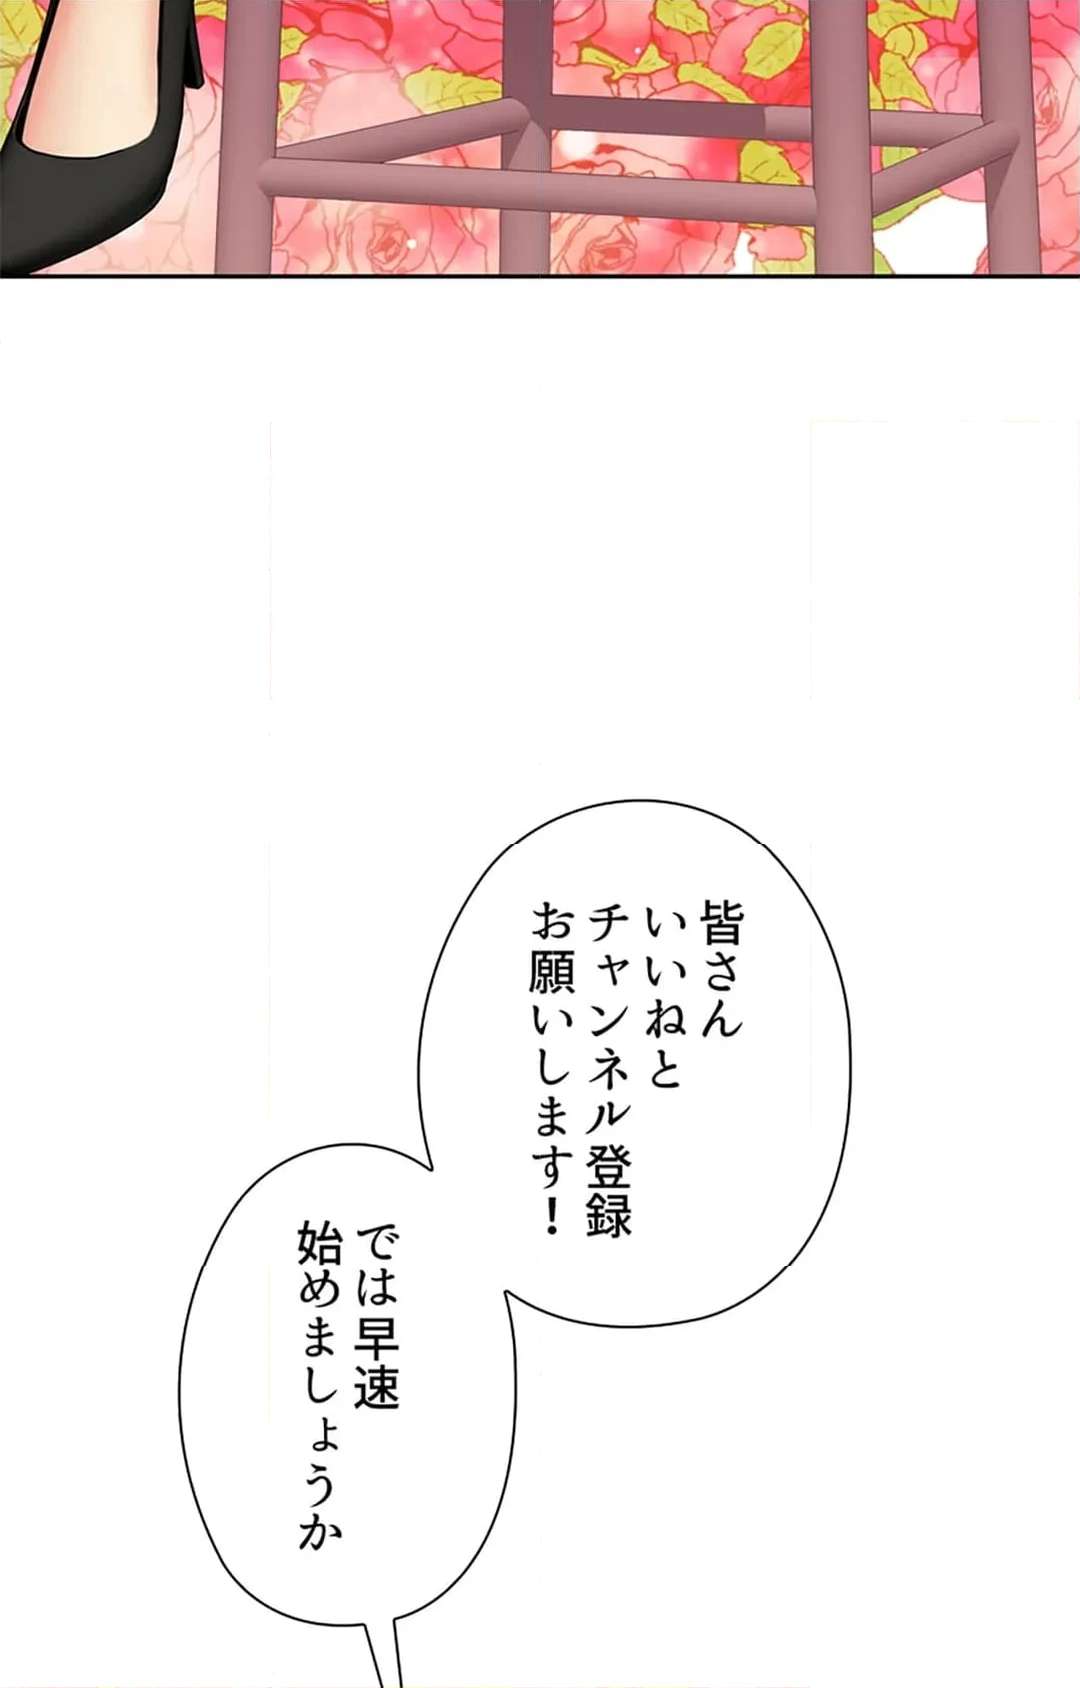 皆さん
いいねと
チャンネル登録
お願いします！
では早速
始めましょうか